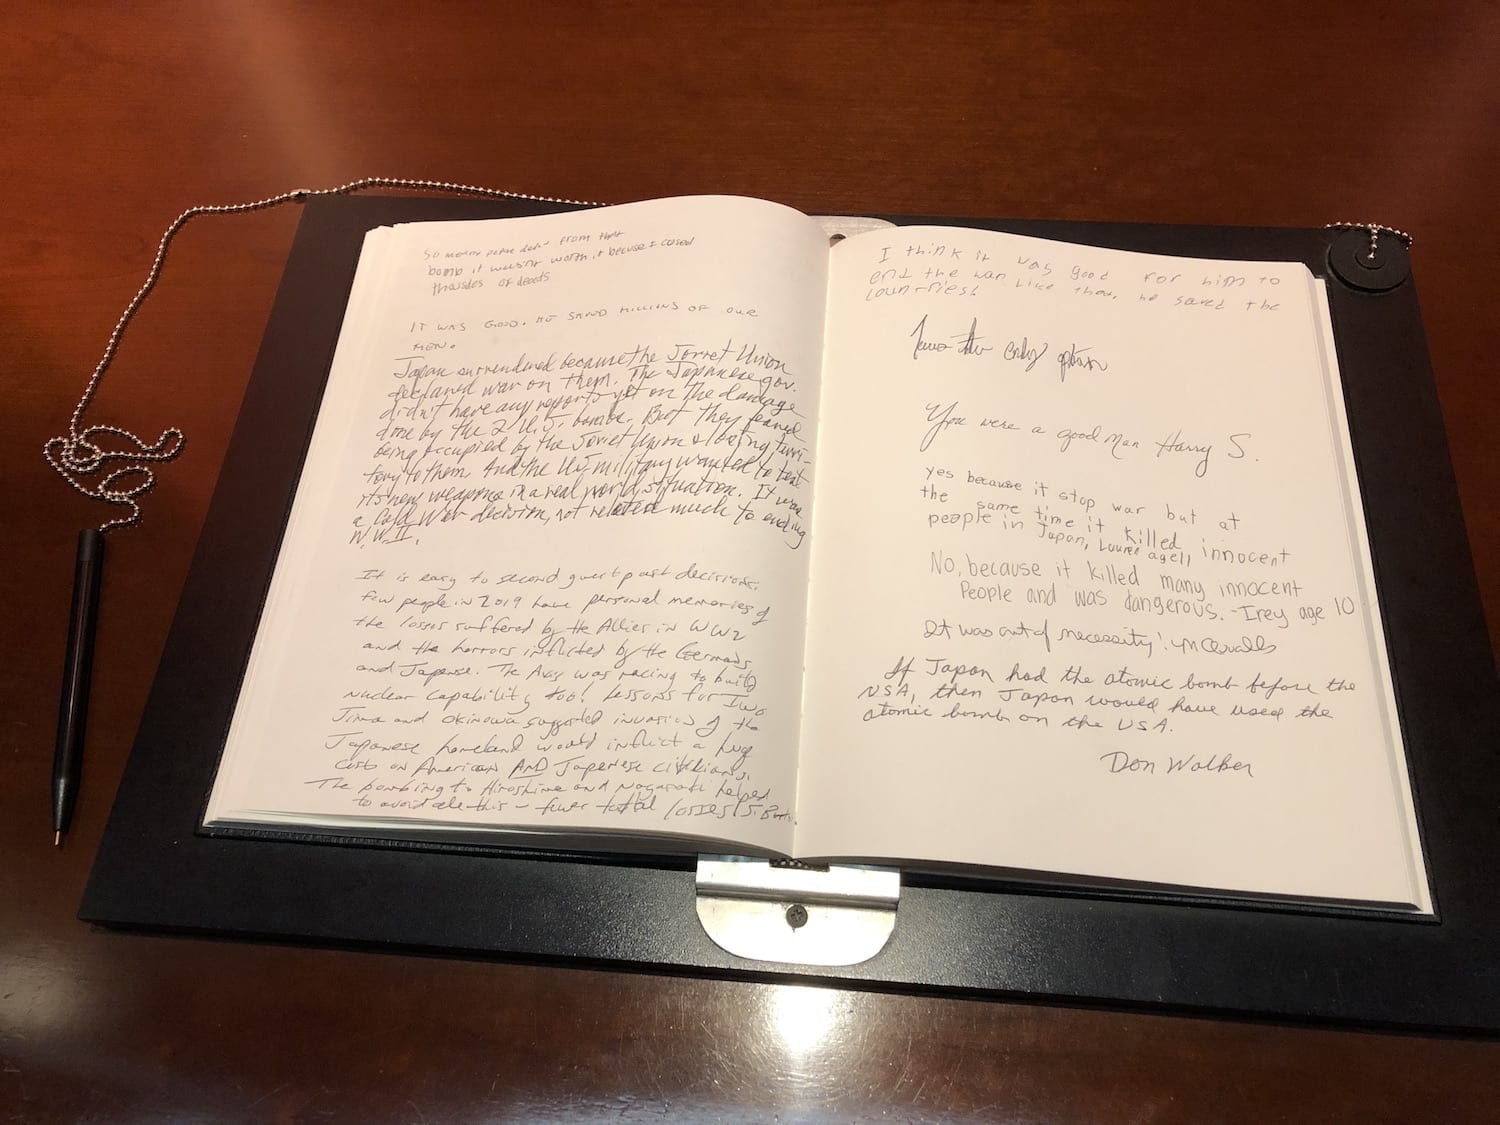 So many people died from that
bomb it wasn't worth it because I caused
thousdes of deeds
IT WAS GOOD. HE SAVED MILLIONS OF OUR
MEN.
Japan surrendered because the Soviet Union
declared war on them. The Japanese gov.
didn't have any reports yet on the damage
done by the 2 U.S. bombs. But they feared
being occupied by the Soviet Union & losing terri-
tory to them. And the US military wanted to test
its new weapons in a real world situation. It was
a Cold War decision, not related much to ending
W.W.II.
It is easy to second guess past decisions.
Few people in 2019 have personal memories of
the losses suffered by the Allies in WW2
and the horrors inflicted by the Germans
and Japanese. The Axis was racing to build
nuclear capability too! Lessons for Iwo
Jima and Okinawa suggested invasion of the
Japanese homeland would inflict a huge
cost on American AND Japanese civilians.
The bombing to Hiroshima and Nagasaki helped
to avoid all this - fewer total losses
I think it was good for him to
end the war like that, he saved the
countries!
the only option
You were a good man Harry S.
yes because it stop war but at
the same time it killed innocent
people in Japan, Lauren age 11
No, because it killed many innocent
People and was dangerous. -Irey age 10
It was out of necessity!
If Japan had the atomic bomb before the
USA, then Japan would have used the
atomic bomb on the USA.
Don Walker